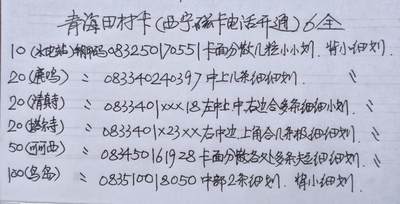 青海田村卡(西宁磁卡电话开通)6全
10(水电站)编码083250170551卡面分散几粒小小划.背小细划.
20(鹿鸣) 〃 083340240397中上几条细细划. 〃
20(清真寺) 〃 0833401×××18左中上中右边合多条细细小划. 〃
20(塔尔寺) 〃 0833401×23××右中边上角合几条极细细划. 〃
50(河西) 〃 083450161928卡面分散各处多条短细细划. 〃
100(鸟岛) 〃 083510018050中部2条细划.背小细划.